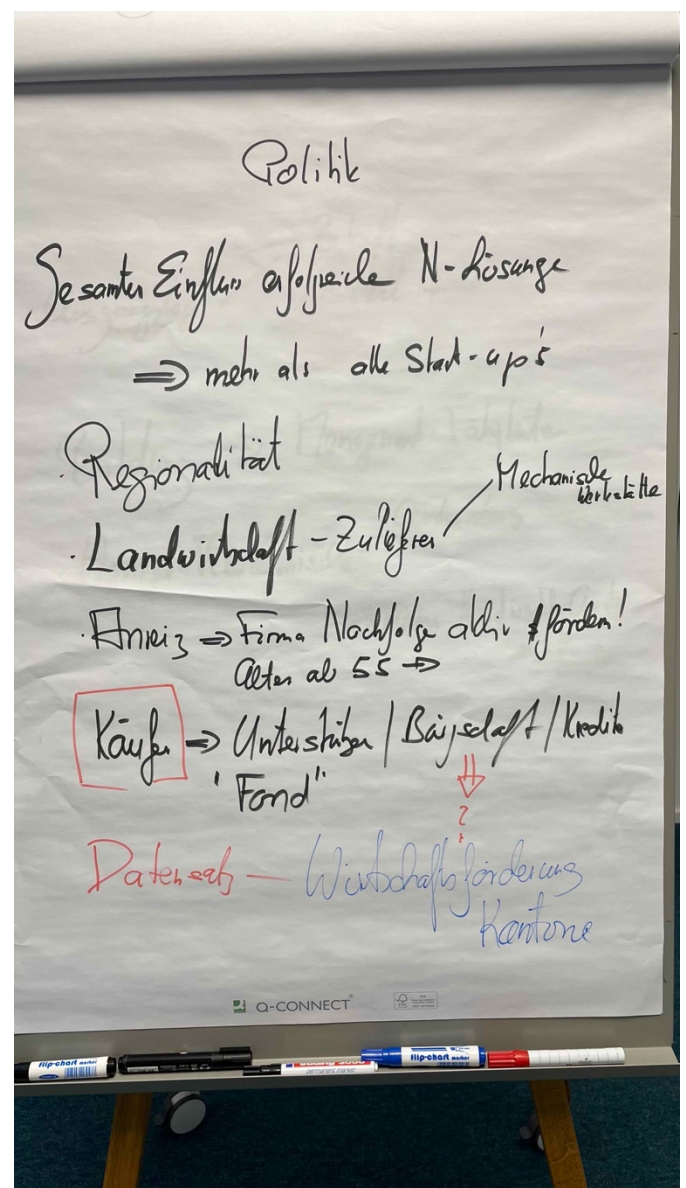 Politik
Gesamter Einfluss erfolgreiche N-Lösunge
⇒ mehr als alle Start-up's
· Regionalität
· Landwirtschaft - Zulieferer
Mechanische
Werkstätte
· Anreiz ⇒ Firma Nachfolge aktiv fördern!
Alter ab 55 →
Käufer ⇒ Unterstützen / Bürgschaft / Kredite
"Fond"
⇓
?
Datensatz — Wirtschaftsförderung
Kantone
Q-CONNECT
flip-chart marker
flip-chart marker